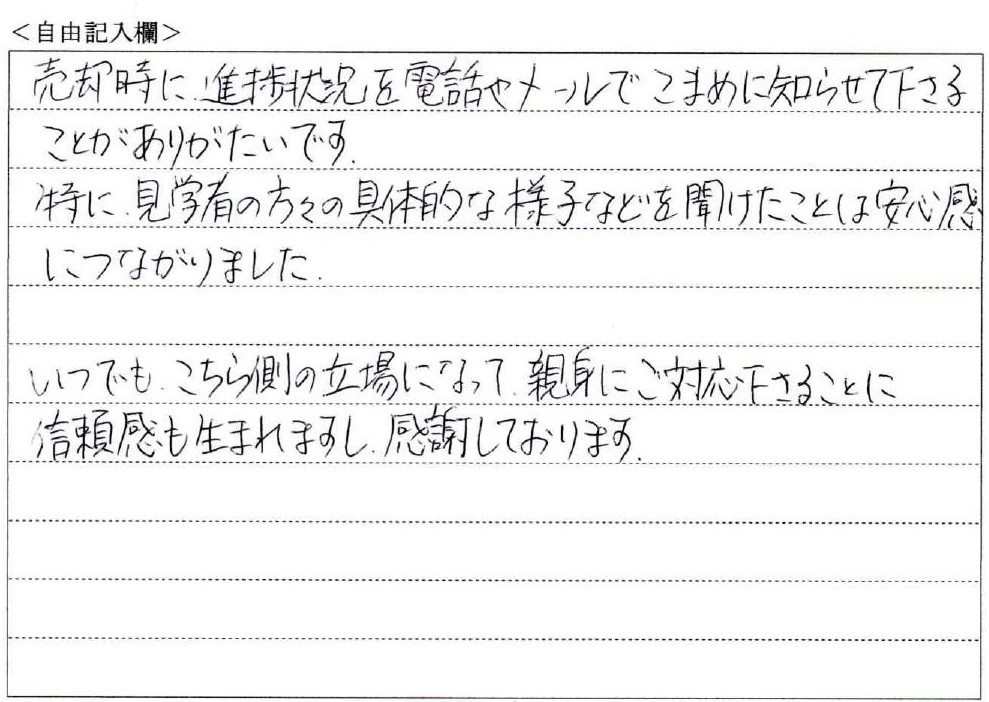 ＜自由記入欄＞
売却時に、進捗状況を電話やメールでこまめに知らせて下さる
ことがありがたいです。
特に、見学者の方々の具体的な様子などを聞けたことは安心感
につながりました。
いつでも、こちら側の立場になって、親身にご対応下さることに
信頼感も生まれますし、感謝しております。